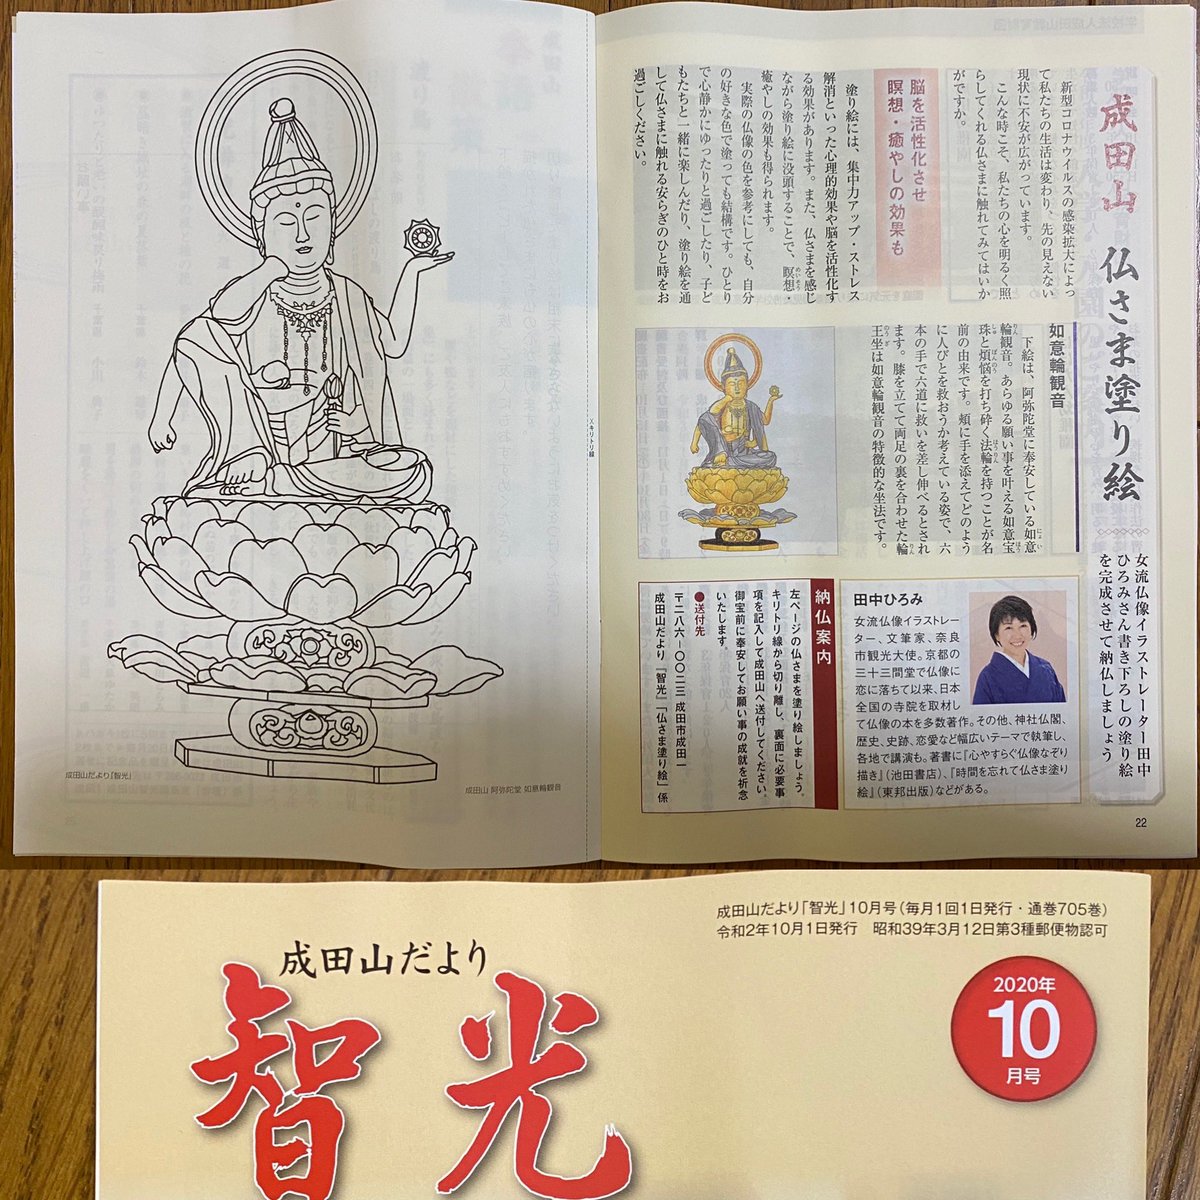 成田山 仏さま塗り絵
女流仏像イラストレーター田中
ひろみさん書き下ろしの塗り絵
を完成させて納仏しましょう
新型コロナウイルスの感染拡大によっ
て私たちの生活は変わり、先の見えない
現状に不安が広がっています。
こんな時こそ、私たちの心を明るく照
らしてくれる仏さまに触れてみてはいか
がですか。
脳を活性化させ
瞑想・癒やしの効果も
塗り絵には、集中力アップ・ストレス
解消といった心理的効果や脳を活性化す
る効果があります。また、仏さまを感じ
ながら塗り絵に没頭することで、瞑想・
癒やしの効果も得られます。
実際の仏像の色を参考にしても、自分
の好きな色で塗っても結構です。ひとり
で心静かにゆったりと過ごしたり、子ど
もたちと一緒に楽しんだり、塗り絵を通
して仏さまに触れる安らぎのひと時をお
過ごしください。
如意輪観音
下絵は、阿弥陀堂に奉安している如意
輪観音。あらゆる願い事を叶える如意宝
珠と煩悩を打ち砕く法輪を持つことが名
前の由来です。頬に手を添えてどのよう
に人びとを救おうか考えている姿で、六
本の手で六道に救いを差し伸べるとされ
ます。膝を立てて両足の裏を合わせた輪
王坐は如意輪観音の特徴的な坐法です。
田中ひろみ
女流仏像イラストレー
ター、文筆家、奈良
市観光大使。京都の
三十三間堂で仏像に
恋に落ちて以来、日本
全国の寺院を取材し
て仏像の本を多数著作。その他、神社仏閣、
歴史、史跡、恋愛など幅広いテーマで執筆し、
各地で講演も。著書に『心やすらぐ仏像なぞり
描き』(池田書店)、『時間を忘れて仏さま塗り
絵』(東邦出版)などがある。
納仏案内
左ページの仏さまを塗り絵しましょう。
キリトリ線から切り離し、裏面に必要事
項を記入して成田山へ送付してください。
御宝前に奉安してお願い事の成就を祈念
いたします。
●送付先
〒二八六−〇〇二三 成田市成田一
成田山だより「智光」「仏さま塗り絵」係
22
キリトリ線
成田山だより「智光」
成田山 阿弥陀堂 如意輪観音
成田山だより「智光」10月号(毎月1回1日発行・通巻705巻)
令和2年10月1日発行 昭和39年3月12日第3種郵便物認可
成田山だより
智光
2020年
10
月号